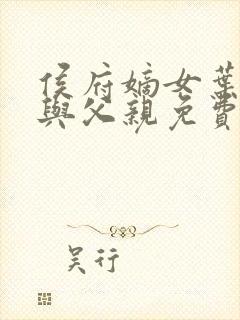 侯府嫡女葉
與父親免費
吴行